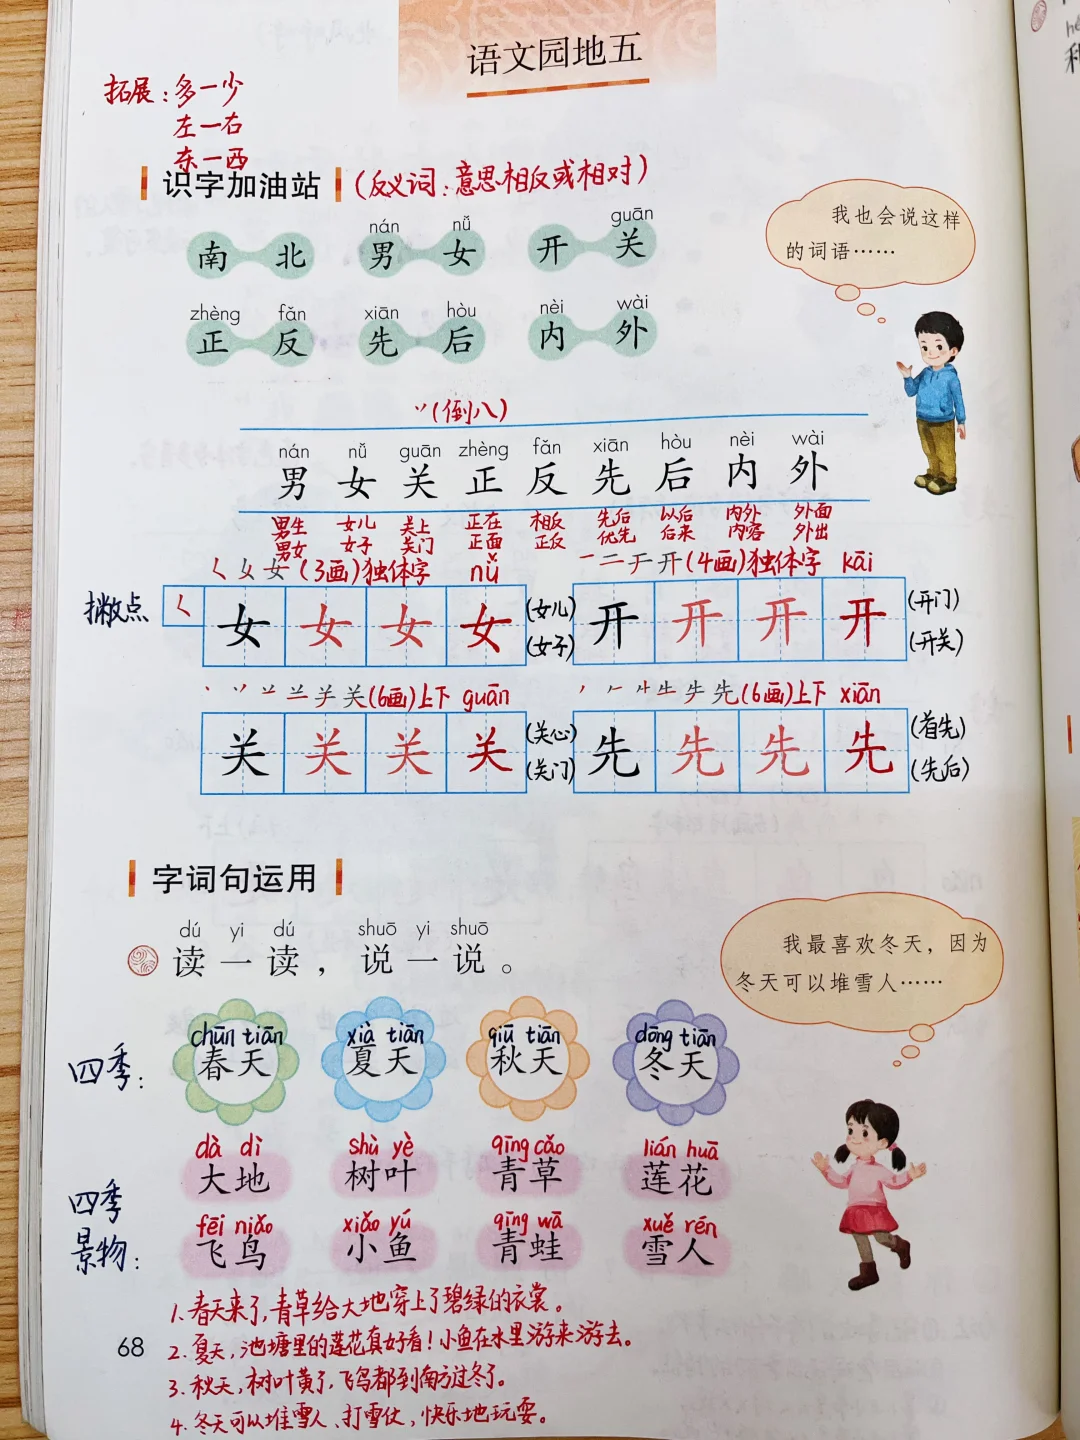 语文园地五
拓展：多一少
左一右
东一西
识字加油站（反义词：意思相反或相对）
nán nǚ guān
南 北 男 女 开 关
zhèng fǎn xiān hòu nèi wài
正 反 先 后 内 外
我也会说这样
的词语……
丷(倒八)
nán nǚ guān zhèng fǎn xiān hòu nèi wài
男 女 关 正 反 先 后 内 外
男生 女儿 关上 正在 相反 先后 以后 内外 外面
男女 女子 关门 正面 正反 优先 后来 内容 外出
く 女 女 (3画)独体字 nǚ
撇点 く 女 女 女 女 (女儿)
(女子)
一 二 于 开 (4画)独体字 kāi
开 开 开 开 (开门)
(开关)
关(6画)上下 guān
关 关 关 关 (关心)
(关门)
先(6画)上下 xiān
先 先 先 先 (首先)
(先后)
字词句运用
dú yi dú shuō yi shuō
读一读，说一说。
我最喜欢冬天，因为
冬天可以堆雪人……
chūn tiān xià tiān qiū tiān dōng tiān
四季： 春天 夏天 秋天 冬天
dà dì shù yè qīng cǎo lián huā
大地 树叶 青草 莲花
四季
景物：
fēi niǎo xiǎo yú qīng wā xuě rén
飞鸟 小鱼 青蛙 雪人
1. 春天来了，青草给大地穿上了碧绿的衣裳。
2. 夏天，池塘里的莲花真好看！小鱼在水里游来游去。
3. 秋天，树叶黄了，飞鸟都到南方过冬了。
4. 冬天可以堆雪人、打雪仗，快乐地玩耍。
68